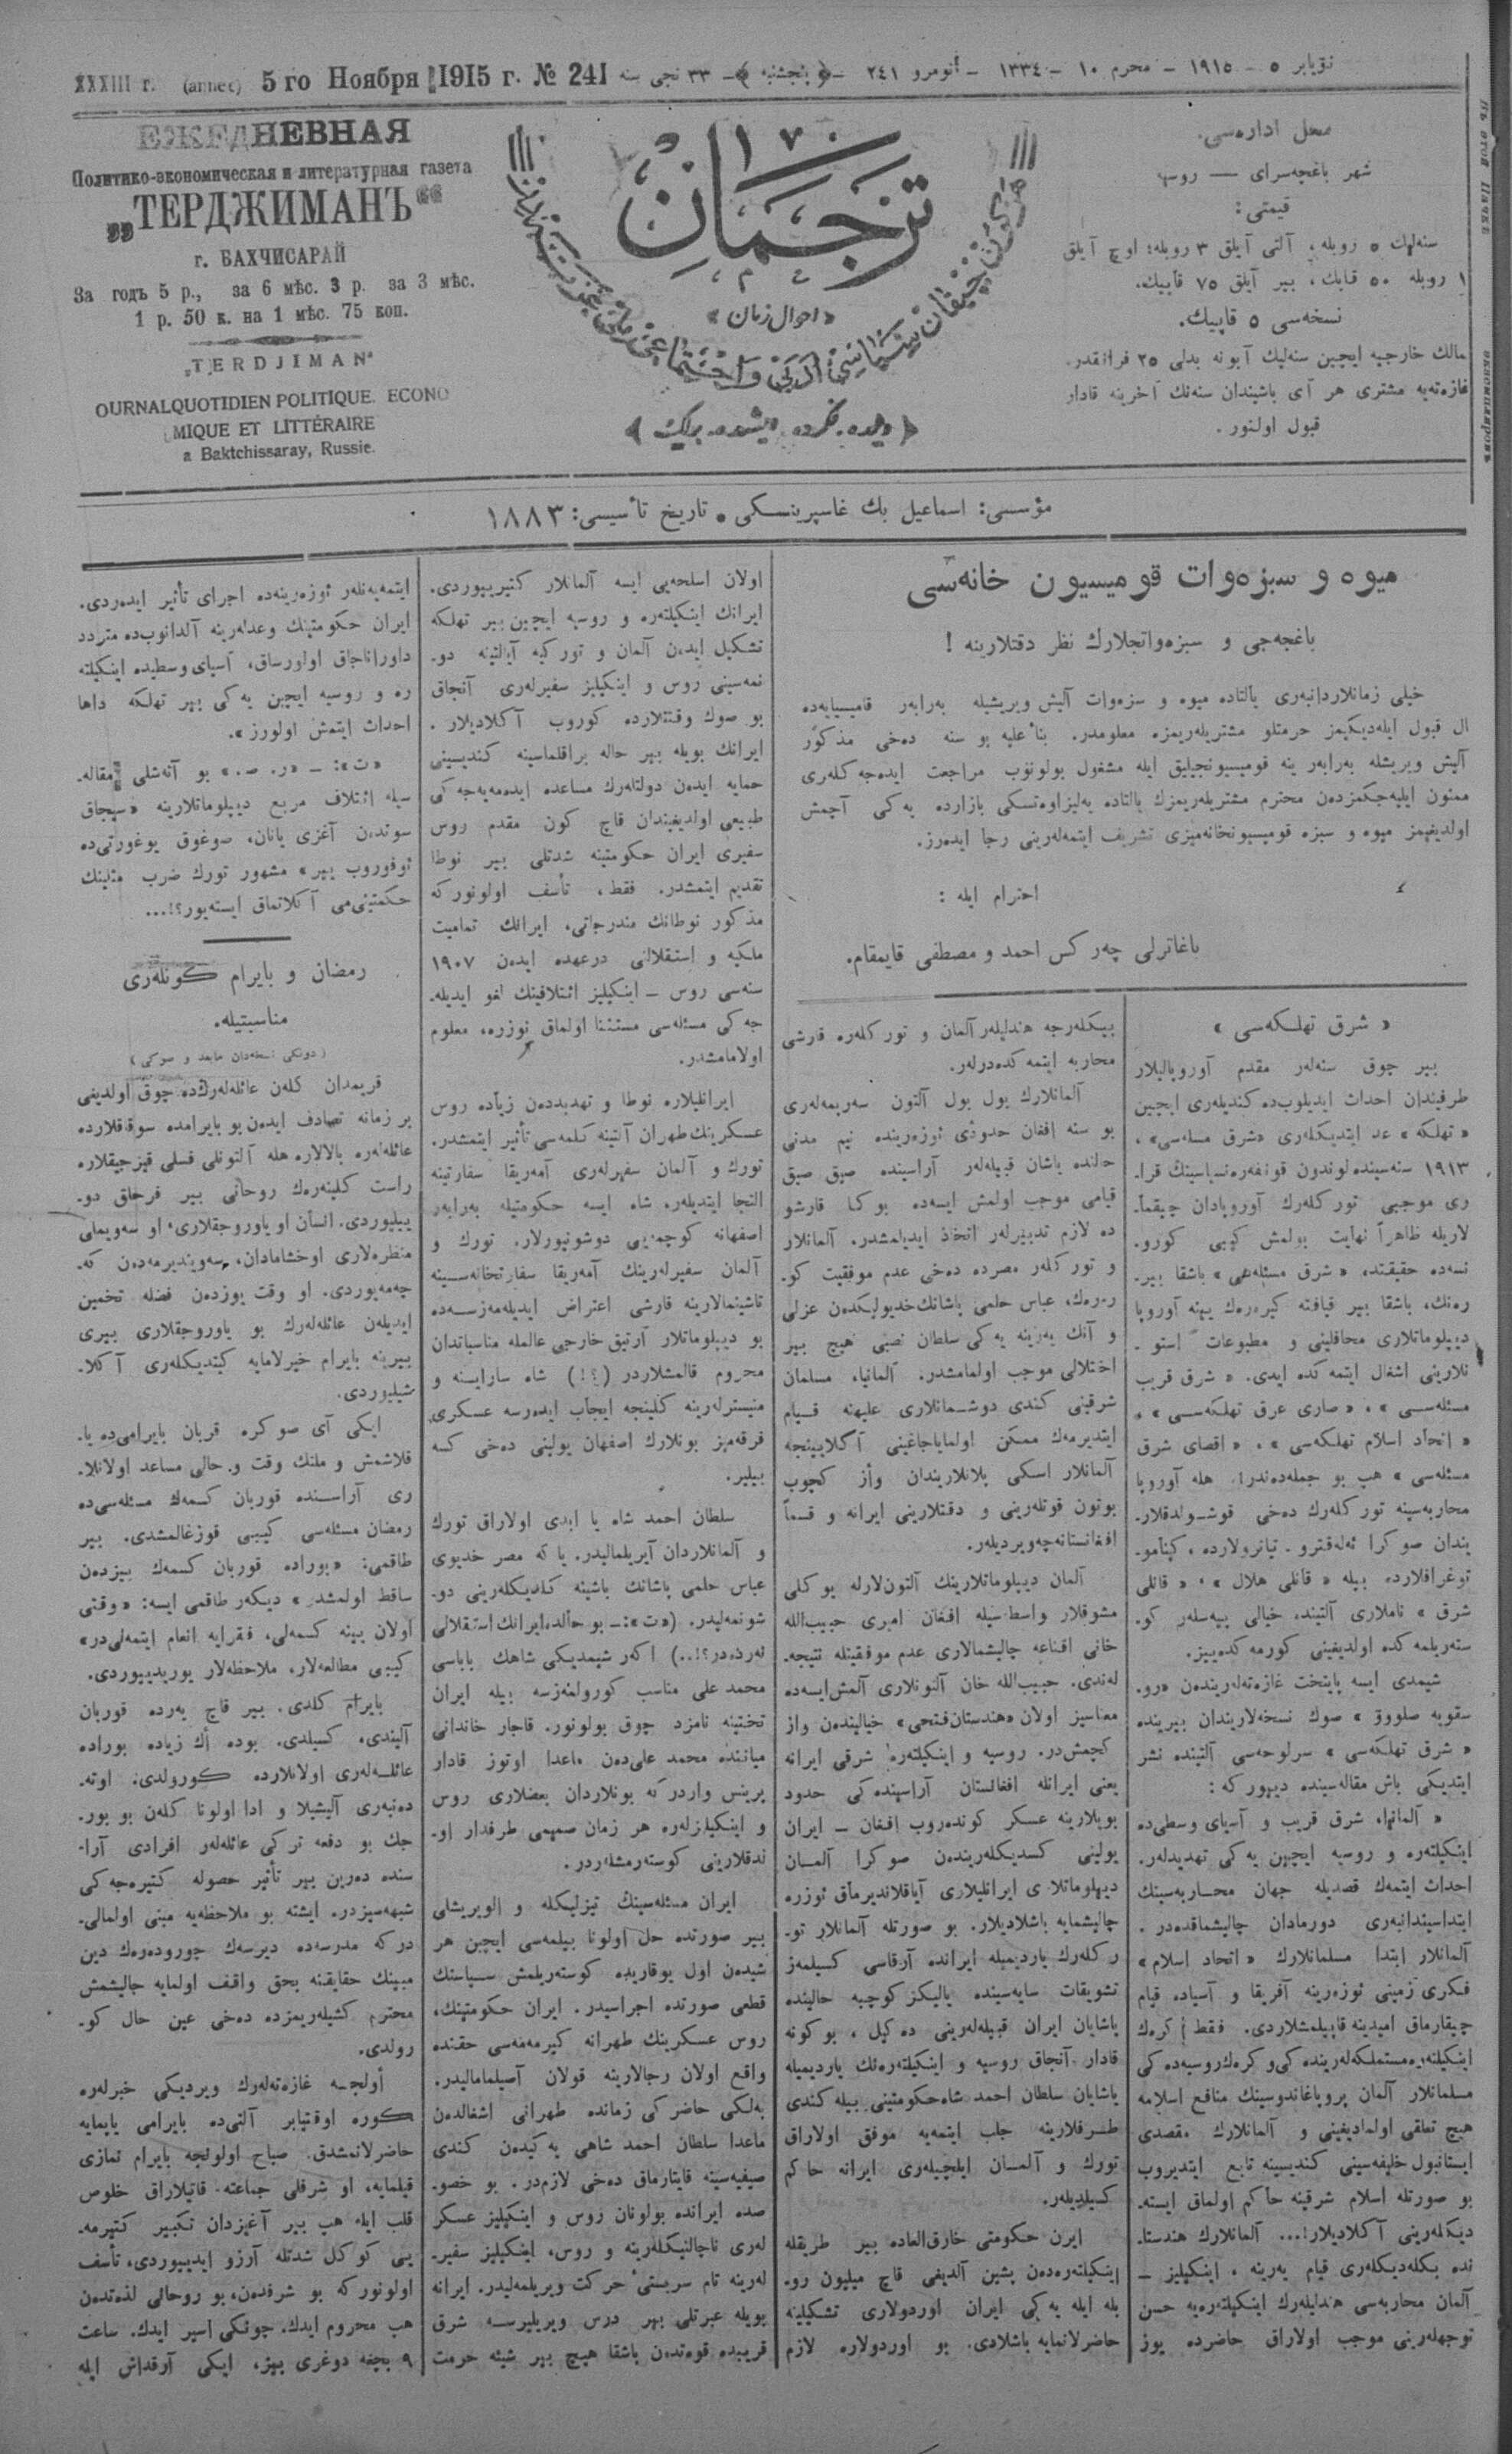 نۆیابر ٥ – ١٩١٥ – محرم ١٠ – ١٣٣٤ – نومرو ٢٤١ –﴿ پنجشنبه ﴾– ٣٣ نجی سنه
XXXIII г. (année) 5 го Ноября 1915 г. № 241
ЕЖЕДНЕВНАЯ
Политико-экономическая и литературная газета
„ТЕРДЖИМАНЪ“
г. БАХЧИСАРАЙ
За годъ 5 р., за 6 мѣс. 3 р. за 3 мѣс.
1 р. 50 к. на 1 мѣс. 75 коп.
„TERDJIMAN“
OURNALQUOTIDIEN POLITIQUE. ECONO
MIQUE ET LITTÉRAIRE
a Baktchissaray, Russie.
ترجمان
«احوال زمان»
﴿ دیلده، فکرده، ایشده، برلیك ﴾
محل اداره‌سی.
شهر باغچه‌سرای — روسیه
قیمتی:
سنه‌لیك ٥ روبله، آلتی آیلق ٣ روبله؛ اوچ آیلق
١ روبله ٥٠ قاپیك، بیر آیلق ٧٥ قاپیك.
نسخه‌سی ٥ قاپیك.
ممالك خارجیه ایچین سنه‌لیك آبونه بدلی ٢٥ فرانقدر.
غازه‌ته‌یه مشتری هر آی باشیندان سنه‌نك آخرینه قادار
قبول اولنور.
مؤسسی: اسماعیل بك غاسپرینسکی • تاریخ تأسیسی: ١٨٨٣
میوه و سبزه‌وات قومیسیون خانه‌سی
باغچه‌جی و سبزه‌واتجلارك نظر دقتلارینه !
خیلی زمانلاردانبه‌ری یالتاده میوه و سزه‌وات آلیش ویریشیله به‌رابه‌ر قامیسیایه‌ده
ال قبول ایله‌دیکیمز حرمتلو مشتریله‌ریمزه معلومدر. بناً علیه بو سنه ده‌خی مذکور
آلیش ویریشله به‌رابه‌ر ینه قومیسیونجیلیق ایله مشغول بولونوب مراجعت ایده‌جه‌کله‌ری
ممنون ایلیه‌جکمزده‌ن محترم مشتریله‌ریمزك یالتاده یه‌لیزاوه‌تسکی بازارده یه‌کی آچمش
اولدیغیمز میوه و سبزه قومیسیونخانه‌میزی تشریف ایتمه‌له‌رینی رجا ایده‌رز.
احترام ایله :
باغاترلی چه‌رکس احمد و مصطفی قایمقام.
« شرق تهلکه‌سی »
بیر چوق سنه‌لر مقدم آوروپالیلار
طرفیندان احداث ایدیلوب‌ده کندیله‌ری ایچین
« تهلکه » عد ایتدیکله‌ری «شرق مسله‌سی»،
١٩١٣ سنه‌سینده لوندون قونفه‌ره‌نسیاسینك قرا-
ری موجبی تورکله‌رك آوروپادان چیقما-
لاریله ظاهراً نهایت بولمش کیبی کورو-
نسه‌ده حقیقتده، «شرق مسئله‌سی» باشقا بیر
ره‌نك، باشقا بیر قیافته کیره‌رك یینه آوروپا
دیپلوماتلاری محافلینی و مطبوعات استو-
نلارینی اشغال ایتمه‌کده ایدی. « شرق قریب
مسئله‌سی »، « صاری عرق تهلکه‌سی »،
« اتحاد اسلام تهلکه‌سی »، « اقصای شرق
مسئله‌سی » هپ بو جمله‌ده‌ندر!. هله آوروپا
محاربه‌سینه تورکله‌رك ده‌خی قوشولدقلار-
یندان صوکرا ئه‌له‌قترو - تیاترولارده، کینه‌مو-
توغرافلارده بیله « قانلی هلال »، « قانلی
شرق » ناملاری آلتینده، خیالی پیه‌سله‌ر کو-
سته‌ریلمه‌کده اولدیغینی کورمه‌کده‌ییز.
شیمدی ایسه پایتخت غازه‌ته‌له‌ریندن «رو-
سقویه صلووۋ » صوك نسخه‌لاریندان بیرینده
« شرق تهلکه‌سی » سرلوحه‌سی آلتینده نشر
ایتدیکی باش مقاله‌سینده دییور که :
« آلمانیا، شرق قریب و آسیای وسطی‌ده
اینکیلته‌ره و روسیه ایچین یه‌کی تهدیدله‌ر
احداث ایتمك قصدیله جهان محاربه‌سینك
ابتداسیندانبه‌ری دورمادان چالیشماقده‌در .
آلمانلار ابتدا مسلمانلارك « اتحاد اسلام »
فکری زمینی ئوزه‌رینه آفریقا و آسیاده قیام
چیقارماق امیدینه قاپیلمشلاردی. فقط کره‌ك
اینکیلته‌ره مستملکه‌له‌رینده‌کی و کره‌ك روسیه‌ده‌کی
مسلمانلار آلمان پروپاغانداسینك منافع اسلامه
هیچ تعلقی اولمادیغینی و آلمانلارك مقصدی
ایستانبول خلیفه‌سینی کندیسینه تابع ایتدیروب
بو صورتله اسلام شرقینه حاکم اولماق ایسته-
دیکله‌رینی آکلادیلار!... آلمانلارك هندستا-
نده بکله‌دیکله‌ری قیام یه‌رینه ، اینکیلیز –
آلمان محاربه‌سی هندلیله‌رك اینکیلته‌ره‌یه حسن
توجهله‌رینی موجب اولاراق حاضرده یوز
بیکله‌رجه هندلیله‌ر آلمان و تورکله‌ره قارشی
محاربه ایتمه‌کده‌درله‌ر.
آلمانلارك یول یول آلتون سه‌ریمه‌له‌ری
بو سنه افغان حدودی ئوزه‌رینده نیم مدنی
حالنده یاشان قبیله‌له‌ر آراسینده صیق صیق
قیامی موجب اولمش ایسه‌ده بوکا قارشو
ده لازم تدبیرله‌ر اتخاذ ایدیلمشدر. آلمانلار
و تورکله‌ر مصرده ده‌خی عدم موفقیت کو-
ره‌رك، عباس حلمی پاشانك خدیولیکده‌ن عزلی
و آنك یه‌رینه یه‌کی سلطان نصبی هیچ بیر
اختلالی موجب اولمامشدر. آلمانیا، مسلمان
شرقینی کندی دوشمانلاری علیهنه قیام
ایتدیرمه‌ك ممکن اولمایاجاغینی آکلایینجه
آلمانلار اسکی پلانلاریندان واز کچوب
بوتون قوتله‌رینی و دقتلارینی ایرانه و قسماً
افغانستانه چه‌ویردیله‌ر.
آلمان دیپلوماتلارینك آلتون‌لارله یوکلی
مشوقلار واسطه‌سیله افغان امیری حبیب‌الله
خانی اقناعه چالیشمالاری عدم موفقیتله نتیجه-
له‌ندی. حبیب‌الله خان آلتونلاری آلمش ایسه‌ده
معناسیز اولان «هندستان فتحی» خیالینده‌ن واز
کچمش‌در. روسیه و اینکیلته‌ره شرقی ایرانه
یعنی ایرانله افغانستان آراسینده‌کی حدود
بویلارینه عسکر کونده‌روب افغان – ایران
یولینی کسدیکله‌رینده‌ن صوکرا آلمان
دیپلوماتلاری ایرانلیلاری آیاقلاندیرماق ئوزره
چالیشمایه باشلادیلار. بو صورتله آلمانلار تو-
رکله‌رك یاردیمیله ایرانده آرقاسی کسیلمه‌ز
تشویقات سایه‌سینده یالیکز کوچبه حالینده
یاشایان ایران قبیله‌له‌رینی ده کیل ، بو کونه
قادار آنجاق روسیه و اینکیلته‌ره‌نك یاردیمیله
یاشایان سلطان احمد شاه حکومتینی بیله کندی
طرفلارینه جلب ایتمه‌یه موفق اولاراق
تورك و آلمان ایلچیله‌ری ایرانه حاکم
کسیلدیله‌ر.
ایرن حکومتی خارق‌العاده بیر طریقله
اینکیلته‌ره‌ده‌ن پشین آلدیغی قاچ میلیون رو-
بله ایله یه‌کی ایران اوردولاری تشکیلینه
حاضرلانمایه باشلادی. بو اوردولاره لازم
اولان اسلحه‌یی ایسه آلمانلار کتیرییوردی.
ایرانك اینکیلته‌ره و روسیه ایچین بیر تهلکه
تشکیل ایده‌ن آلمان و تورکیه آیالتینه دو-
نمه‌سینی روس و اینکیلیز سفیرله‌ری آنجاق
بو صوك وقتلارده کوروب آکلادیلار .
ایرانك بویله بیر حاله براقلماسینه کندیسینی
حمایه ایده‌ن دولتله‌رك مساعده ایده‌مه‌یه‌جه‌کی
طبیعی اولدیغیندان قاچ کون مقدم روس
سفیری ایران حکومتینه شدتلی بیر نوطا
تقدیم ایتمشدر. فقط، تأسف اولونور که
مذکور نوطانك مندرجاتی، ایرانك تمامیت
ملکیه و استقلالنی درعهده ایده‌ن ١٩٠٧
سنه‌سی روس – اینکیلیز ائتلافینك لغو ایدیله-
جه‌کی مسئله‌سی مستثنا اولماق ئوزره، معلوم
اولامامشدر.
ایرانلیلاره نوطا و تهدیدده‌ن زیاده روس
عسکرینك طهران آلتینه کلمه‌سی تأثیر ایتمشدر.
تورك و آلمان سفیرله‌ری آمه‌ریقا سفارتینه
التجا ایتدیله‌ر. شاه ایسه حکومتیله به‌رابه‌ر
اصفهانه کوچمه‌یی دوشونیورلار. تورك و
آلمان سفیرله‌رینك آمه‌ریقا سفارتخانه‌سینه
تاشینمالارینه قارشی اعتراض ایدیله‌مه‌زسه‌ده
بو دیپلوماتلار آرتیق خارجی عالمله مناسباتدان
محروم قالمشلاردر (؟!) شاه سارایینه و
منیسترله‌رینه کلینجه ایجاب ایده‌رسه عسکری
فرقه‌میز بونلارك اصفهان یولینی ده‌خی کسه
بیلیر.
سلطان احمد شاه یا ابدی اولاراق تورك
و آلمانلاردان آیریلمالیدر. یا که مصر خدیوی
عباس حلمی پاشانك باشینه کلدیکله‌رینی دو-
شونمه‌لیدر. («ت»:- بو حالده ایرانك استقلالی
نه‌رده‌در؟!..) اکر شیمدیکی شاهك باباسی
محمد علی مناسب کورولمه‌زسه بیله ایران
تختینه نامزد چوق بولونور. قاجار خاندانی
میاننده محمد علی‌ده‌ن ماعدا اوتوز قادار
پرینس واردر که بونلاردان بعضلاری روس
و اینکیلیزله‌ره هر زمان صمیمی طرفدار او-
لدقلارینی کوسته‌رمشله‌ردر.
ایران مسئله‌سینك تیزلیکله و الویریشلی
بیر صورتده حل اولونا بیلمه‌سی ایچین هر
شیده‌ن اول یوقاریده کوسته‌ریلمش سیاستك
قطعی صورتده اجراسیدر. ایران حکومتینك،
روس عسکرینك طهرانه کیرمه‌مه‌سی حقنده
واقع اولان رجالارینه قولان آصیلمامالیدر.
به‌لکی حاضرکی زمانده طهرانی اشغالده‌ن
ماعدا سلطان احمد شاهی یه‌کیده‌ن کندی
صیفیه‌سینه قایتارماق ده‌خی لازم‌در. بو خصو-
صده ایرانده بولونان روس و اینکیلیز عسکر
له‌ری ناچالنیکله‌رینه و روس، اینکیلیز سفیر-
له‌رینه تام سربستیٔ حرکت ویریلمه‌لیدر. ایرانه
بویله عبرتلی بیر درس ویریلیرسه شرق
قریبده قوه‌تده‌ن باشقا هیچ بیر شیئه حرمت
ایتمه‌ینله‌ر ئوزه‌رینه‌ده اجرای تأثیر ایده‌ردی.
ایران حکومتینك وعدله‌رینه آلدانوب‌ده متردد
داوراناجاق اولورساق، آسیای وسطیده اینکیلته
ره و روسیه ایچین یه‌کی بیر تهلکه داها
احداث ایتمش اولورز».
«ت»: – «ر. ص.» بو آته‌شلی مقاله-
سیله ائتلاف مربع دیپلوماتلارینه «سیجاق
سوتدن آغزی یانان، صوغوق یوغورتی‌ده
ئوفوروب ییر» مشهور تورك ضرب مثلینك
حکمتینی‌می آکلاتماق ایسته‌یور؟!...
رمضان و بایرام کونله‌ری
مناسبتیله.
(دونکی نسخه‌دان مابعد و صوکی)
قریمدان کلن عائله‌له‌رك‌ده چوق اولدیغی
بر زمانه تصادف ایده‌ن بو بایرامده سوقاقلارده
عائله‌له‌ره بالالاره هله آلتونلی فسلی قیزجیقلاره
راست کلینه‌رك روحانی بیر فرخلق دو-
ییلیوردی. انسان او یاوروجقلاری، او سه‌ویملی
منظره‌لاری اوخشامادان، سه‌ویندیرمه‌ده‌ن که-
چه‌مه‌یوردی. او وقت یوزده‌ن فضله تخمین
ایدیله‌ن عائله‌له‌رك بو یاوروجقلاری بیری
بیرینه بایرام خیرلامایه کیتدیکله‌ری آکلا-
شیلیوردی.
ایکی آی صوکره قربان بایرامی‌ده یا-
قلاشمش و ملتك وقت و حالی مساعد اولانلا-
ری آراسنده قوربان کسمه‌ك مسئله‌سی‌ده
رمضان مسئله‌سی کیبی قوزغالمشدی. بیر
طاقمی: «بوراده قوربان کسمه‌ك بیزده‌ن
ساقط اولمشدر» دیکه‌ر طاقمی ایسه: «وقتی
اولان یینه کسمه‌لی، فقرایه انعام ایتمه‌لی‌در»
کیبی مطالعه‌لار، ملاحظه‌لار یوریدییوردی.
بایرام کلدی. بیر قاچ یه‌رده قوربان
آلیندی، کسیلدی. بوده أك زیاده بوراده
عائله‌له‌ری اولانلارده کورولدی. اوته-
ده‌نبه‌ری آلیشیلا و ادا اولونا کلن بو بور-
جك بو دفعه ترکی عائله‌له‌ر افرادی آرا-
سنده ده‌رین بیر تأثیر حصوله کتیره‌جه‌کی
شبهه‌سیزدر. ایشته بو ملاحظه‌یه مبنی اولمالی-
درکه مدرسه‌ده دیرسه‌ك چوروده‌رك دین
مبینك حقایقنه بحق واقف اولمایه چالیشمش
محترم کشیله‌ریمزده ده‌خی عین حال کو-
رولدی.
أولجه غازه‌ته‌له‌رك ویردیکی خبرله‌ره
کوره اوقتیابر آلتی‌ده بایرامی یاپمایه
حاضرلانمشدق. صباح اولونجه بایرام نمازی
قیلمایه، او شرفلی جماعته قاتیلاراق خلوص
قلب ایله هپ بیر آغیزدان تکبیر کتیرمه-
یی کوکل شدتله آرزو ایدییوردی، تأسف
اولونور که بو شرفده‌ن، بو روحانی لذتده‌ن
هپ محروم ایدك. چونکی اسیر ایدك. ساعت
٩ بچغه دوغری بیز، ایکی آرقداش ایله